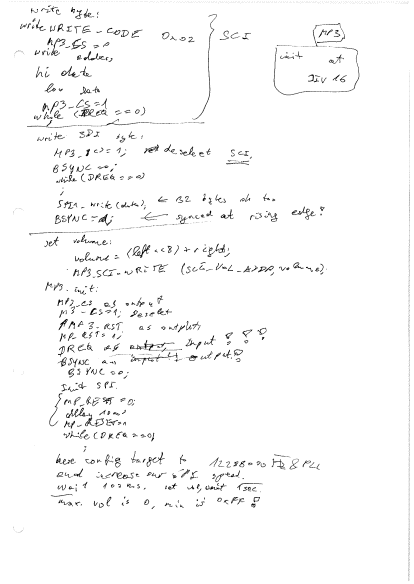 write byte:
write WRITE_CODE 0x02
MP3_CS = 0
write address
hi data
low data
MP3_CS = 1
while (DREQ == 0)
SCI
MP3
init at
DIV 16
write SDI byte:
MP3_CS = 1; deselect SCI,
BSYNC = 0;
while (DREQ == 0)
;
SPI1_write(data), ← 32 bytes
BSYNC = ← synced at rising edge?
set volume:
volume = (left << 8) + right;
MP3_SCI_WRITE (SCI_VOL_ADDR, volume),
MP3_init:
MP3_CS as output
MP3_CS = 1; deselect
MP3_RST as output;
MP_RST = 1;
DREQ as input ! ! !
BSYNC as output!
BSYNC = 0;
Init SPI.
MP_RESET = 0;
delay 10ms
MP_RESET = 1
while (DREQ == 0)
;
here config target to 12288000 Hz 8 PLL
and increase our SPI speed.
wait 100ms. set vol, wait 1 sec.
max. vol is 0, min is 0xFF !